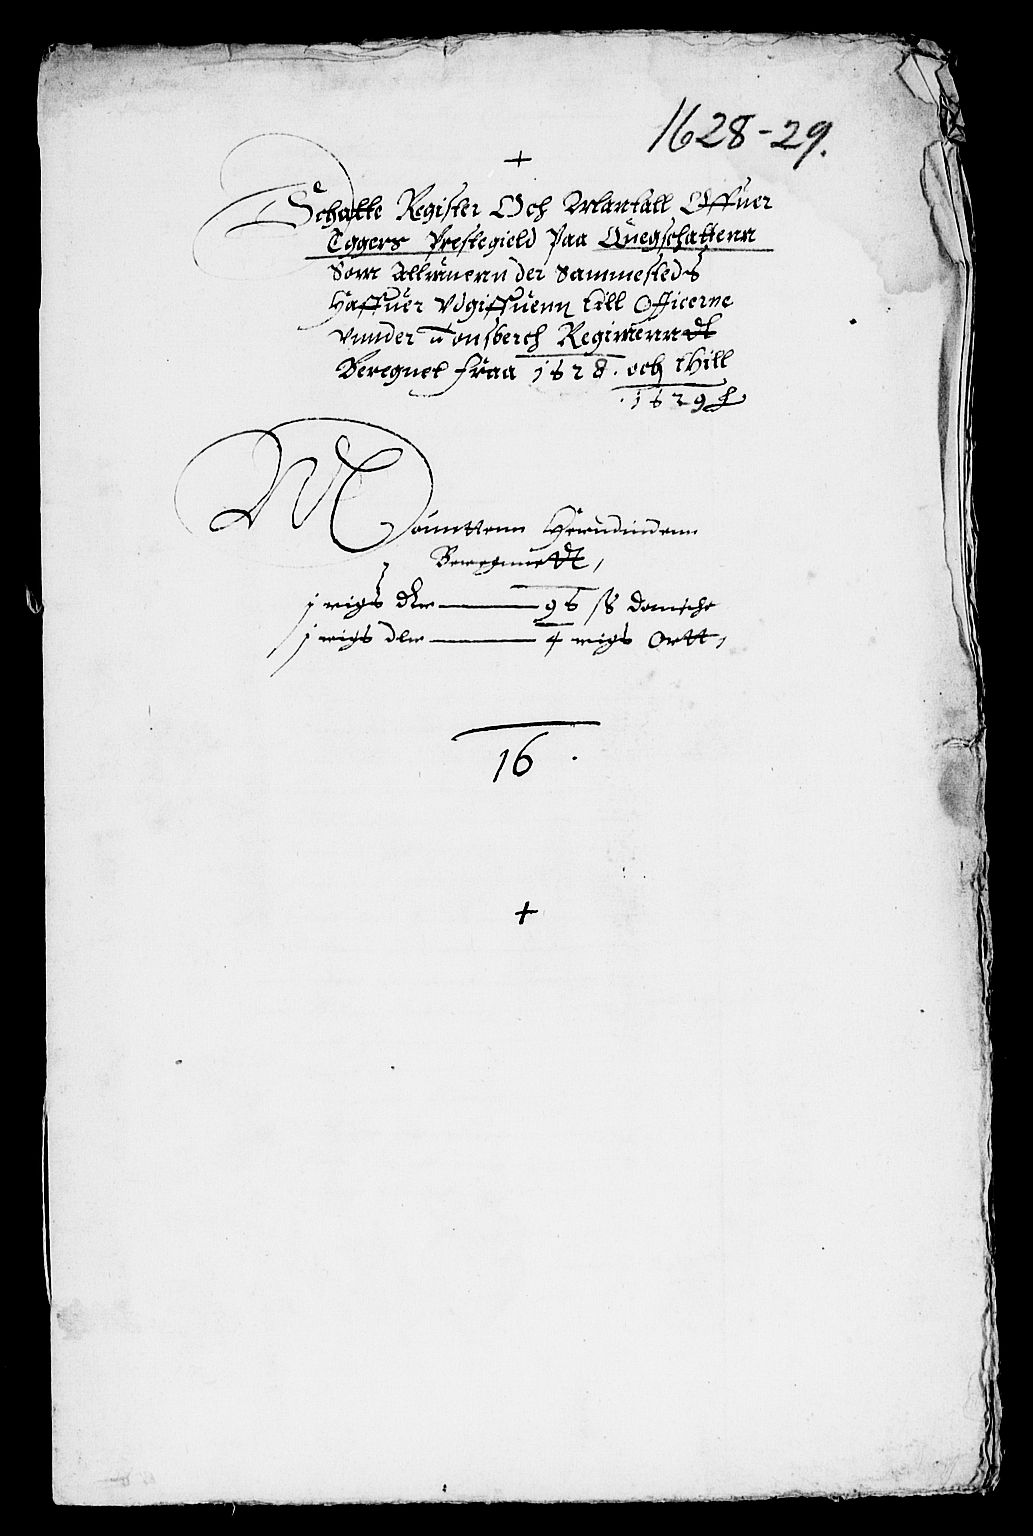 1628-29.
+
Schatte Register Och Mantall Offuer
Eggers Prestegield Paa Quegschattenn
Som Allmuenn der Sammesteds
Haffuer Vdgiffuenn till Officerne
Vnnder Tonsberch Regimenndt
Beregnet fraa 1628. och thill
1629
Mountten Herudindenn
Beregnnedt,
j rigs dlr — 96 ß danische
j rigs dlr — 4 rigs Ortt,
16.
+